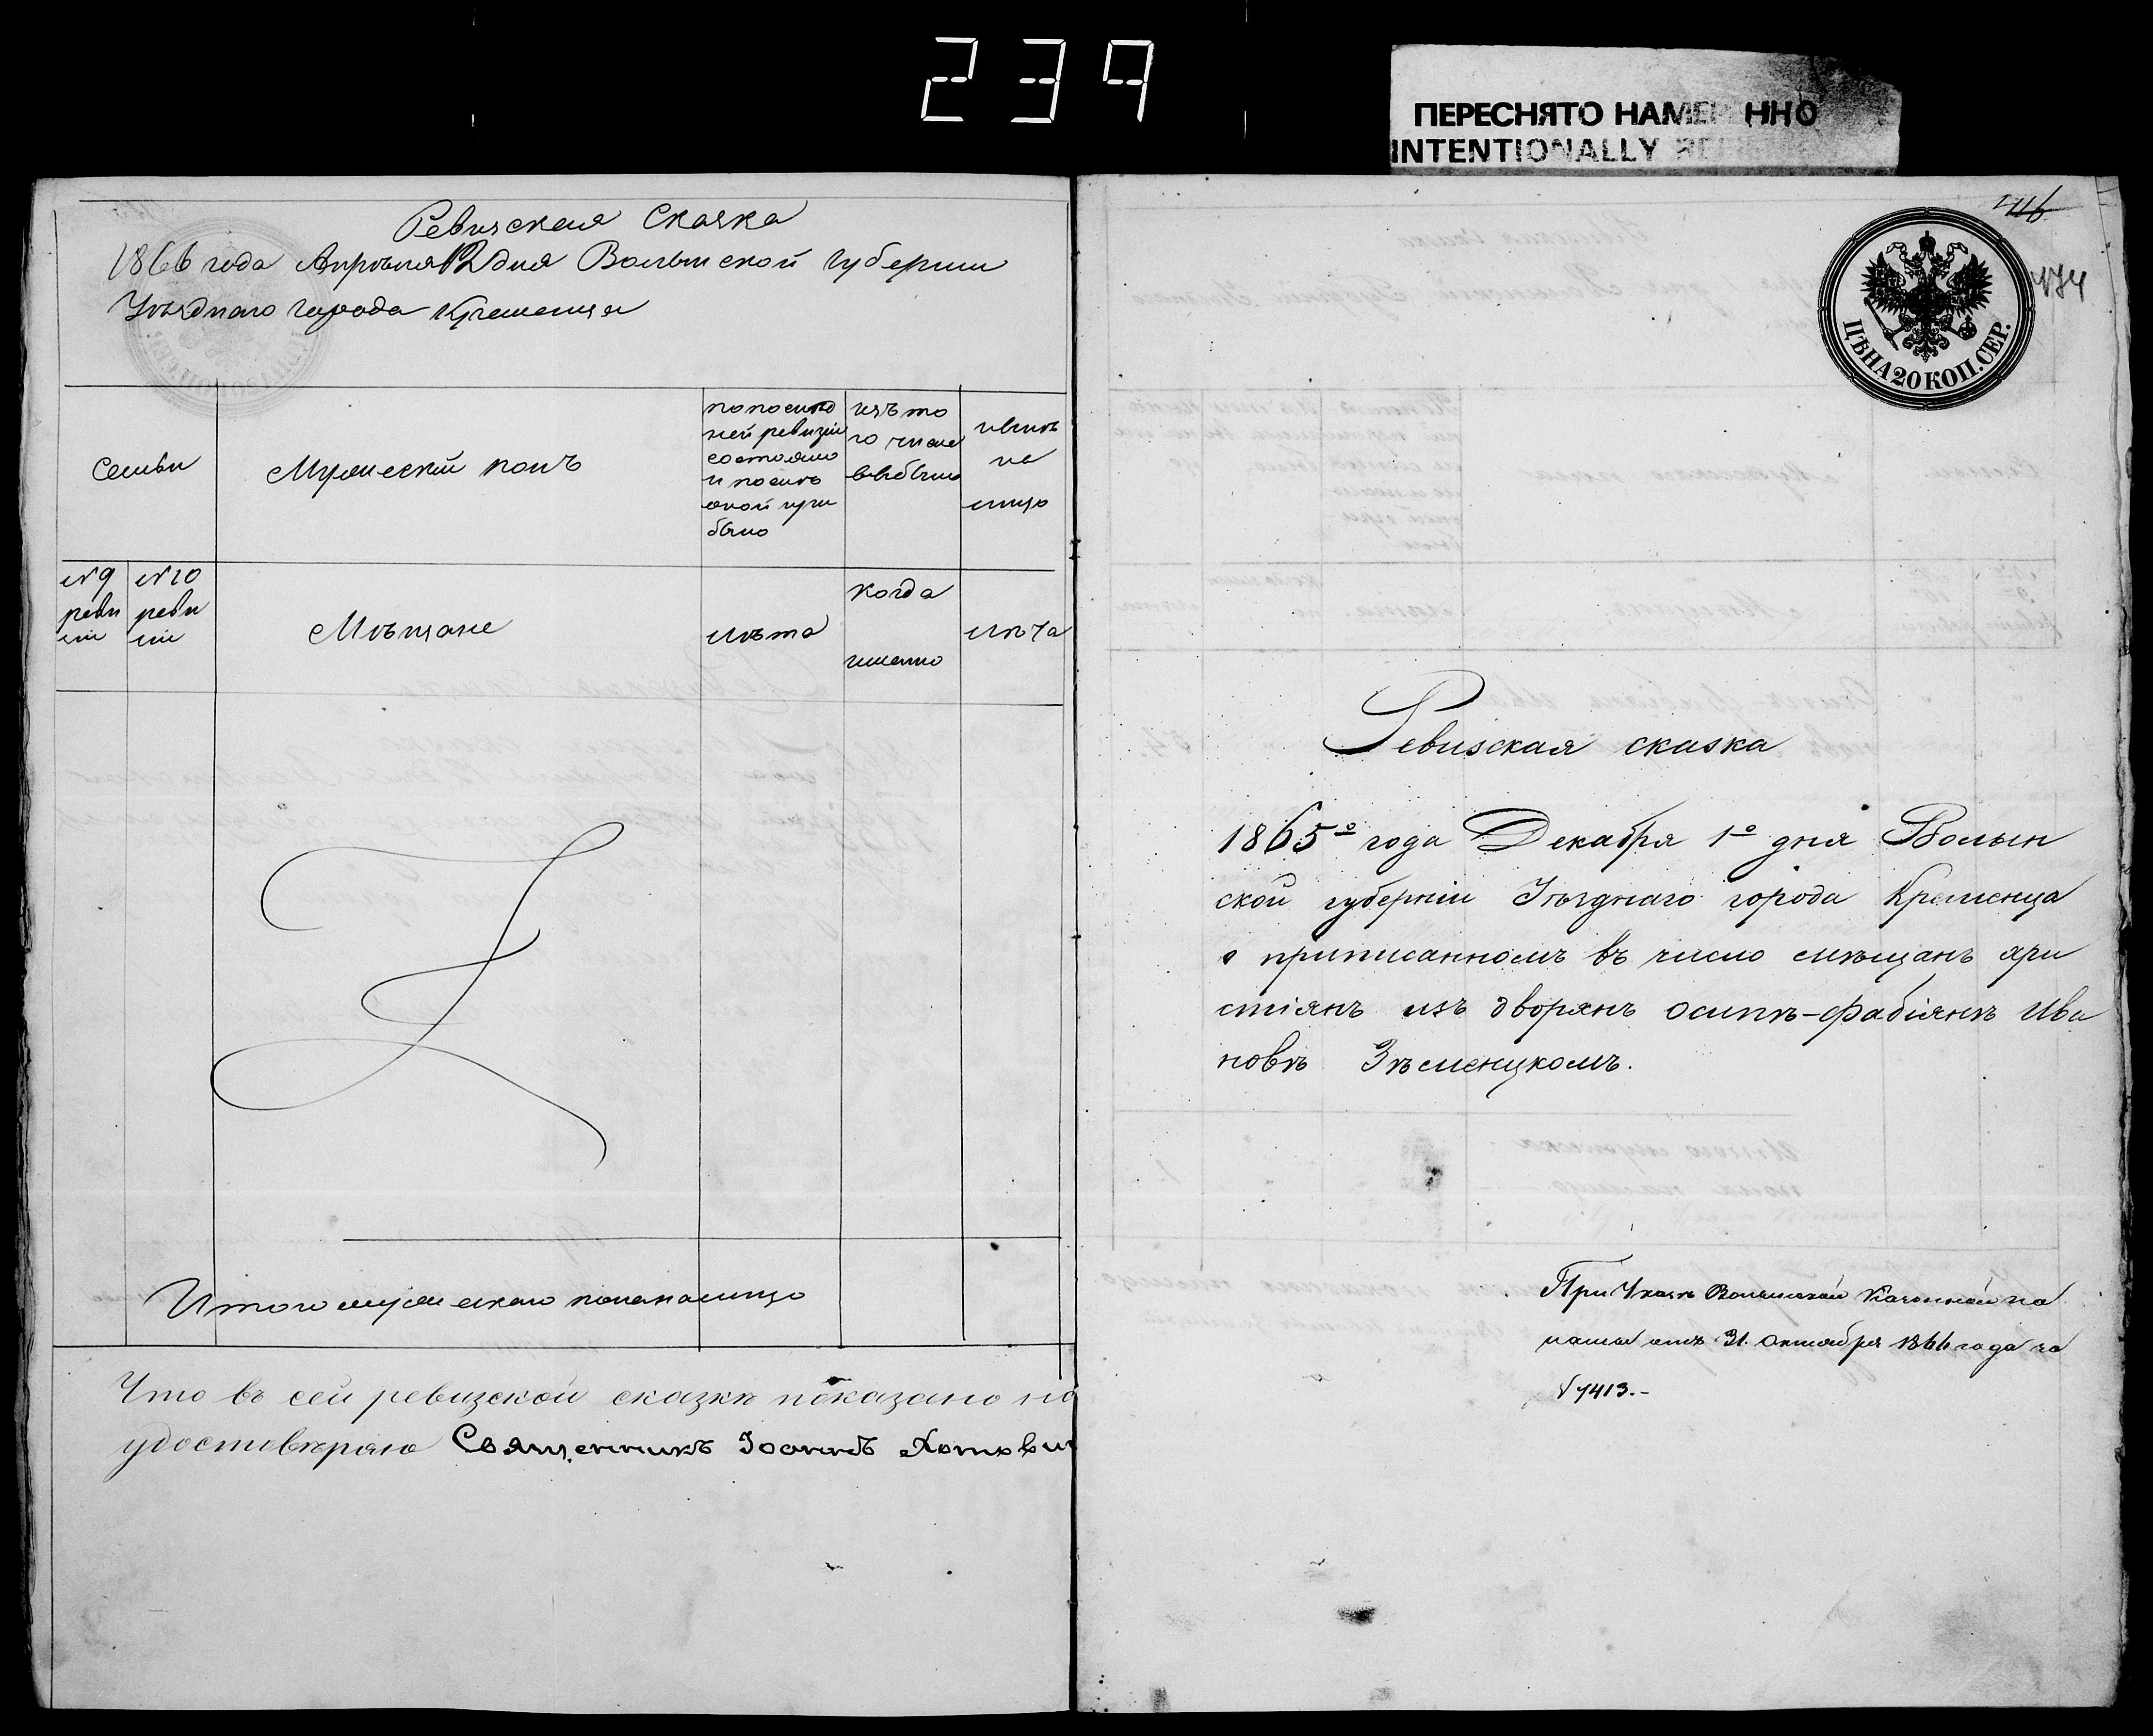 239
ПЕРЕСНЯТО НАМЕР ННО
INTENTIONALLY
Ревизская Сказка
1866 года Апрѣля 12 дня Волынской губерніи
Уѣзднаго города Кременца
Семьи
Мужескій полъ
по послѣд
ней ревизіи
состояло
и послѣ
оной при
было
изъ то
го числа
выбыло
нынѣ
на
лицо
№ 9
реви
зіи
№ 10
реви
зіи
Мѣщане
Лѣта
когда
именно
Лѣта
Итого мужескаго пола налицо
Что въ сей ревизской сказкѣ показано
удостовѣряю Священникъ Іоаннъ
474
ЦѢНА 20 КОП. СЕР.
Ревизская сказка
1865го года Декабря 1го дня Волын
ской губерніи Уѣзднаго города Кременца
о приписанномъ въ число мѣщанъ хри
стіянъ изъ дворянъ Осипѣ-Фабіянѣ Ива
новѣ
При Указѣ Волынской Казенной па
латы отъ 31. Октября 1866 года за
№ 7413.-